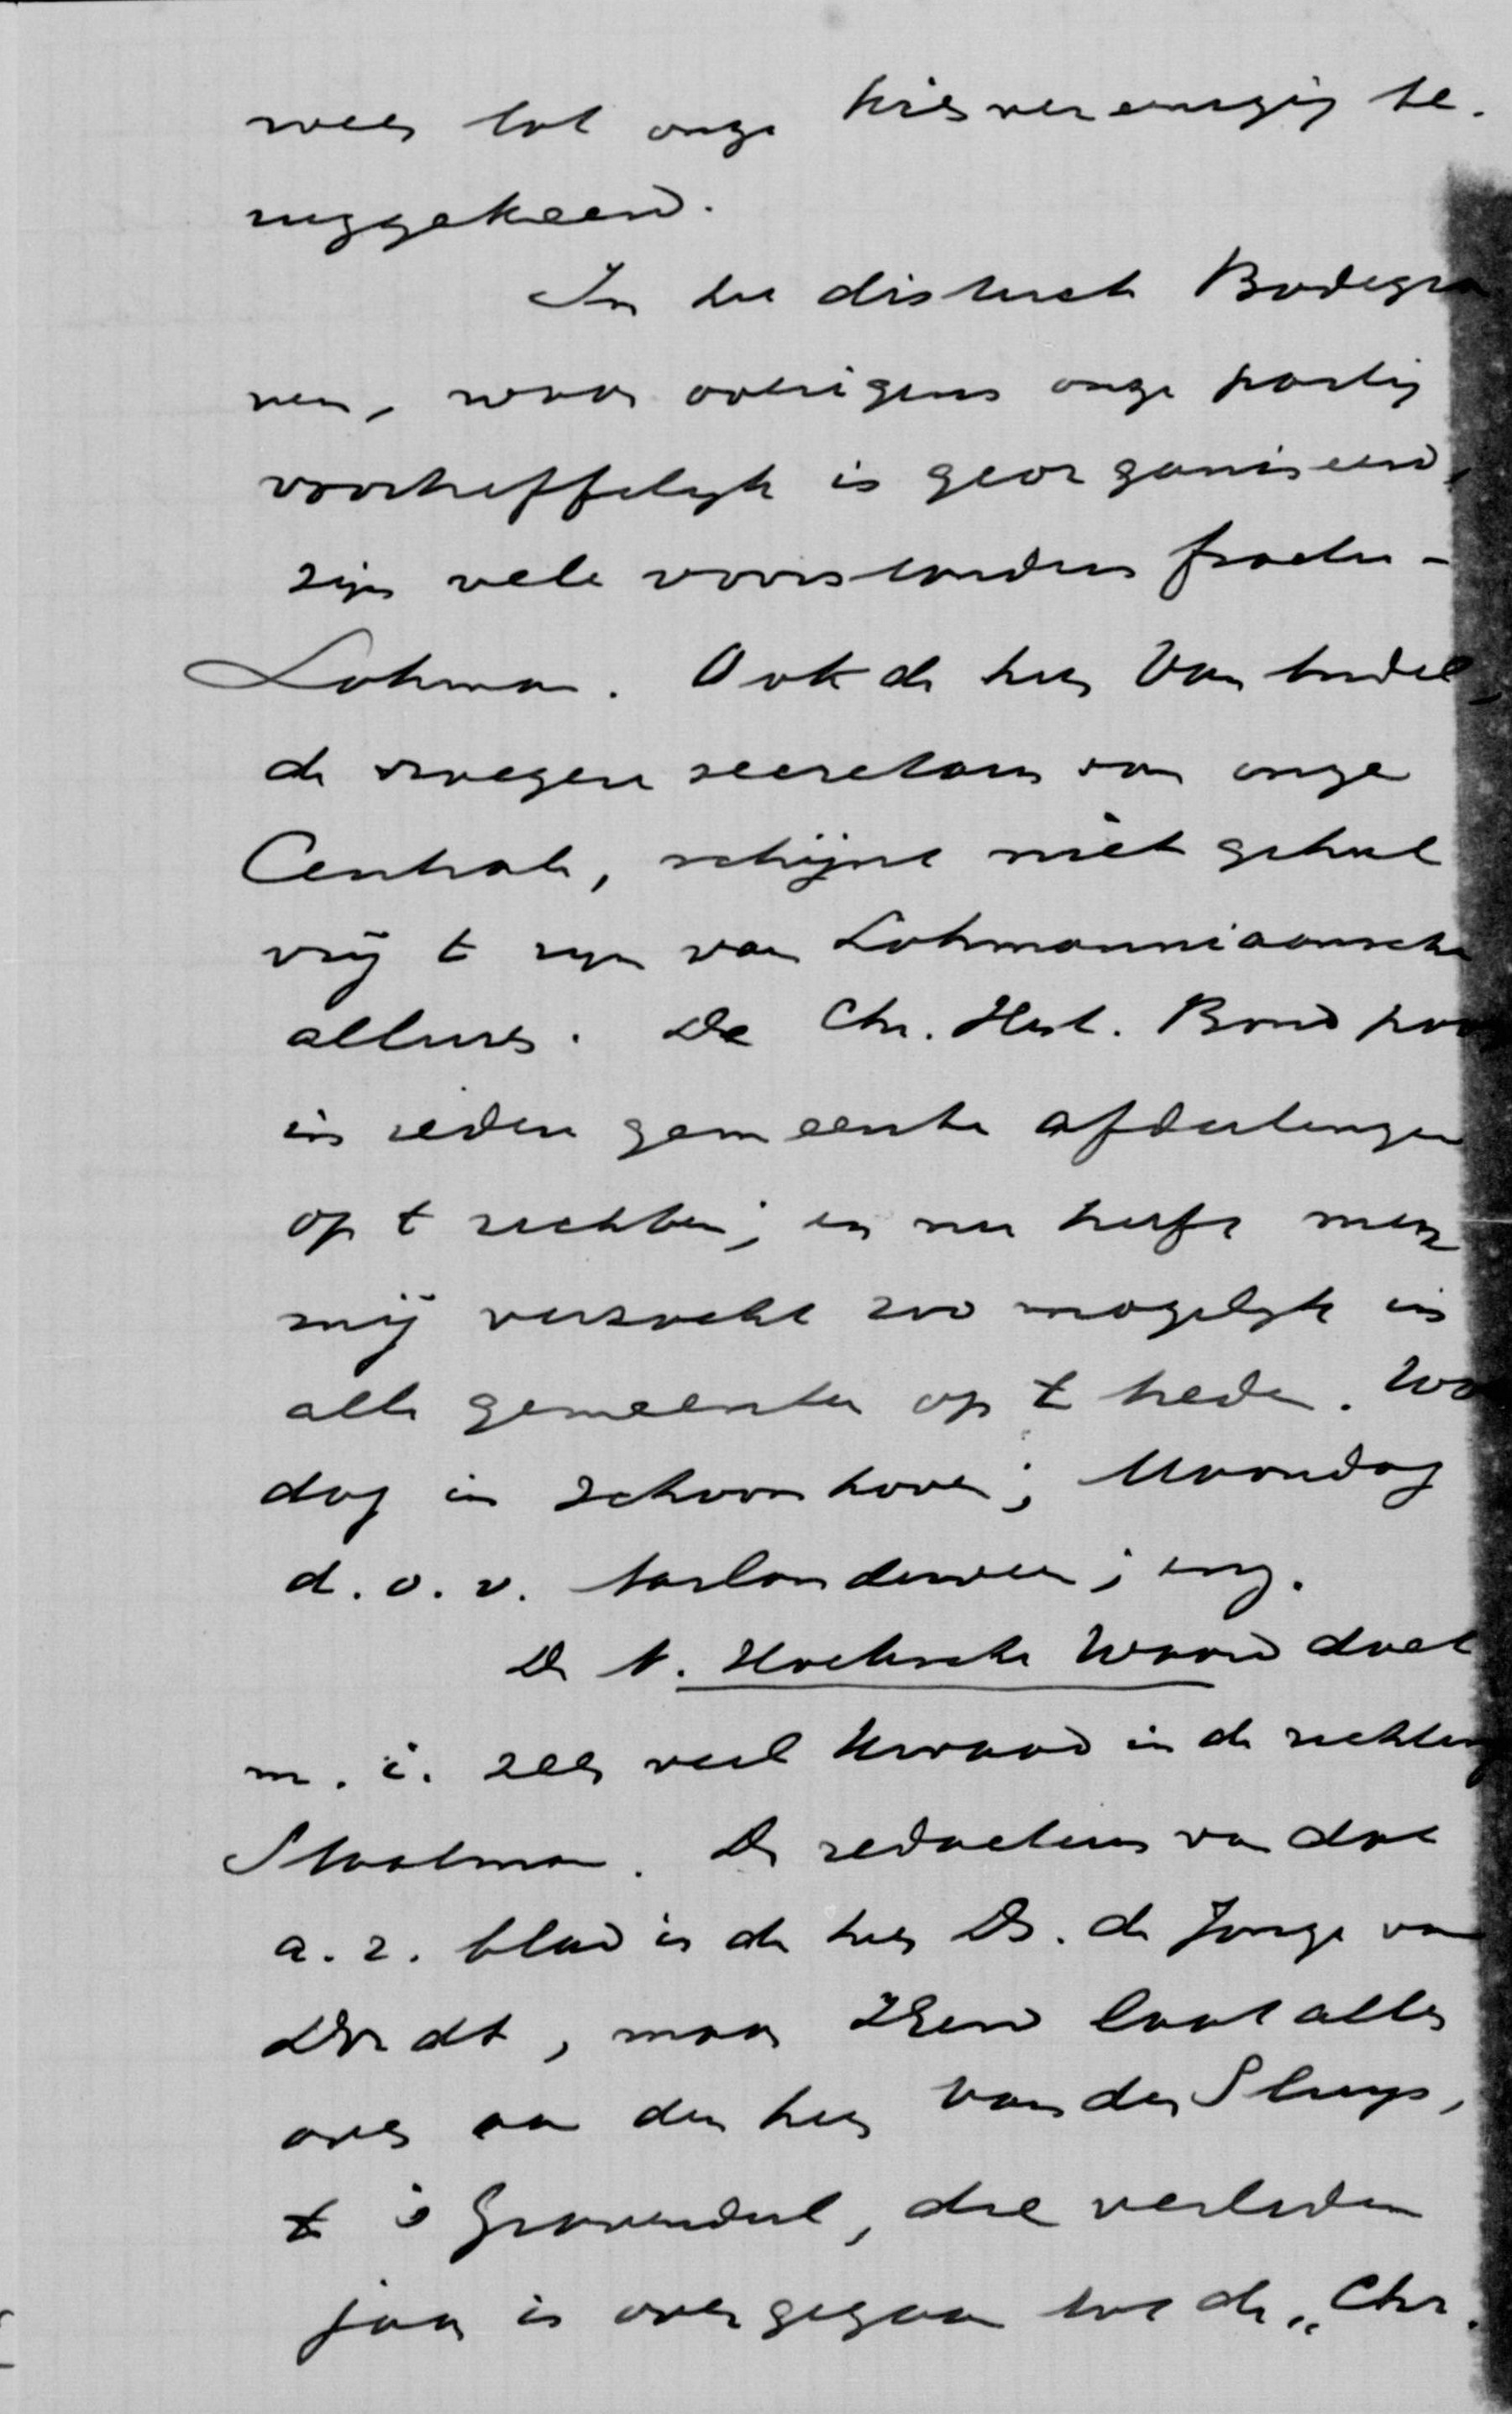 weer tot onze kiesvereeniging te-
ruggekeerd.
In het district Bodegra
ven, waar overigens onze partij
voortreffelijk is georganiseerd,
zijn vele voorstanders fractie-
Lohman. Ook de heer Van
de vroegere secretaris van onze
Centrale, schijnt niet geheel
vrij te zijn van Lohmanniaansche
allures. De Chr. Hist. Bond poo
in iedere gemeente afdeelingen
op te richten; en nu heeft men
mij verzocht zoo mogelijk in
alle gemeenten op te treden. Wo
dag in Schoonhoven; Maandag
d.o.v. Haarlanderveen; enz.
De N. Hoeksche Waard doet
m.i. zeer veel kwaad in de richting
Staalman. De redacteur van dat
a.r. blad is de heer Ds. de Jonge van
Dordt, maar ZEerw laat alles
over aan den heer Van der Sluys,
te 's Gravendeel, die verleden
jaar is overgegaan tot de „Chr.